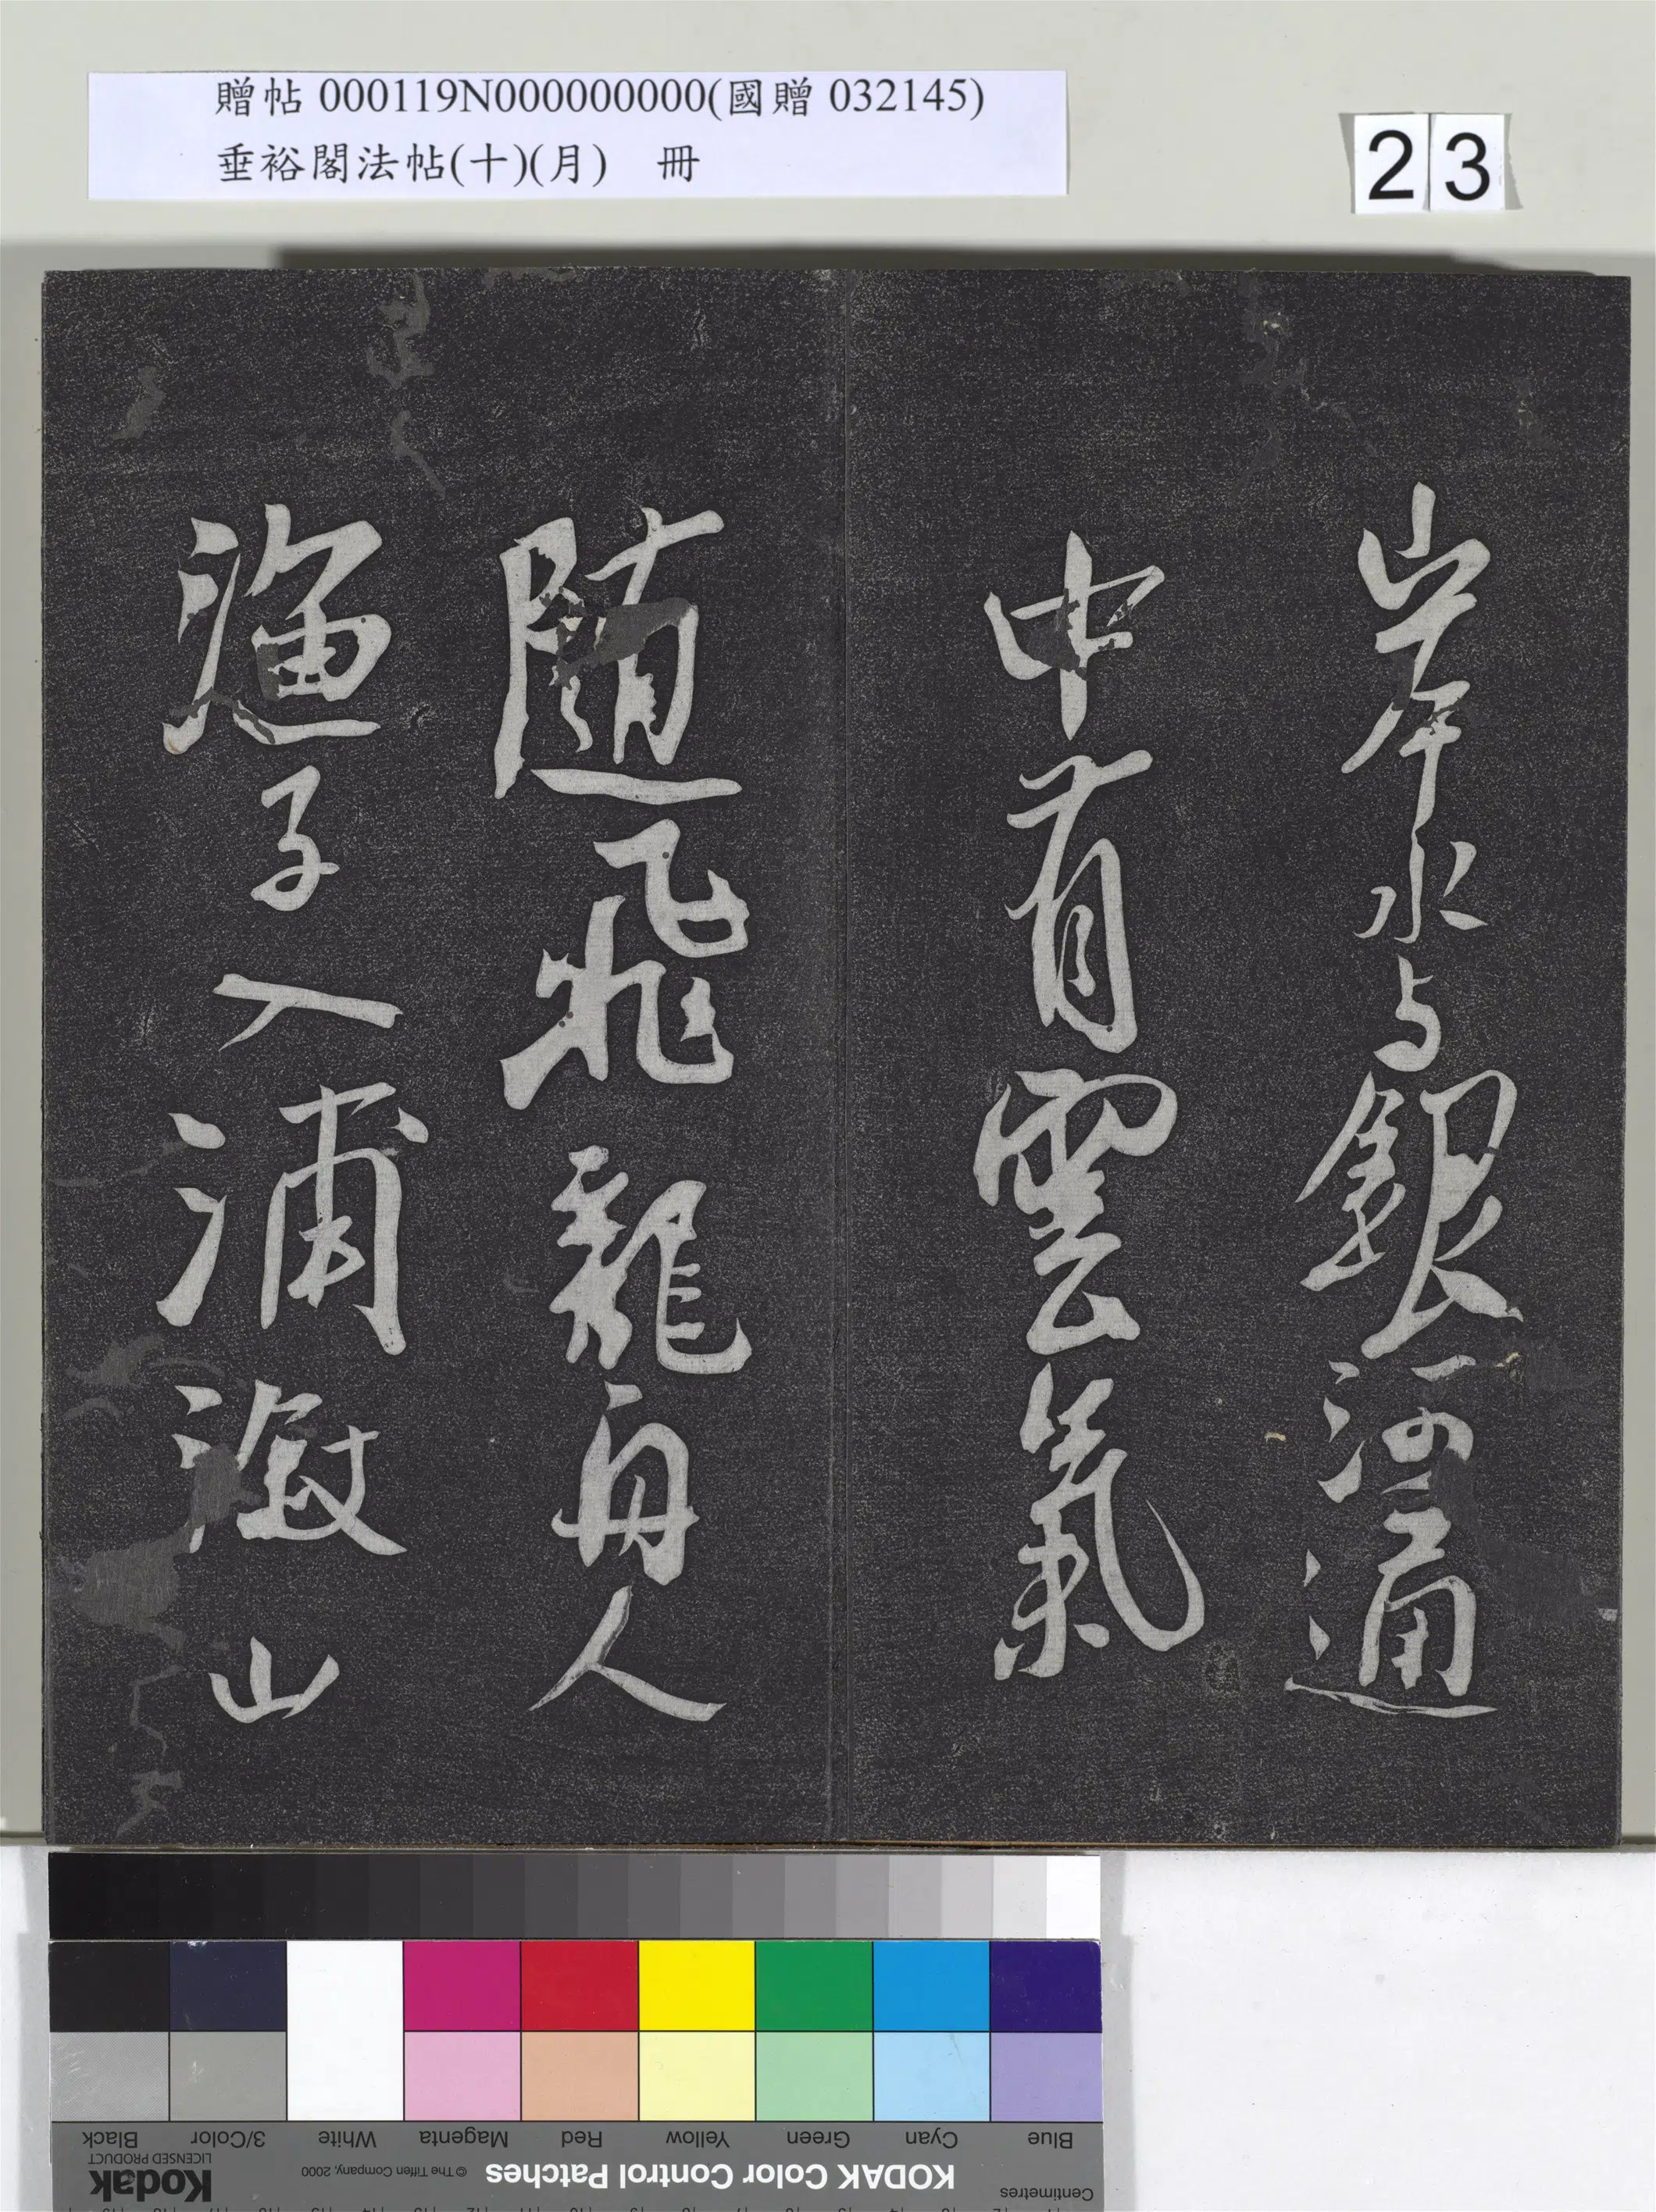 贈帖 000119N000000000(國贈 032145)
垂裕閣法帖(十)(月) 冊
23
岸水与銀河通
中有雲氣
随飛龍舟人
漁子入浦溆山
Black 3/Color White Magenta Red Yellow Green Cyan Blue
LICENSED PRODUCT
Kodak © The Tiffen Company, 2000 KODAK Color Control Patches Centimetres